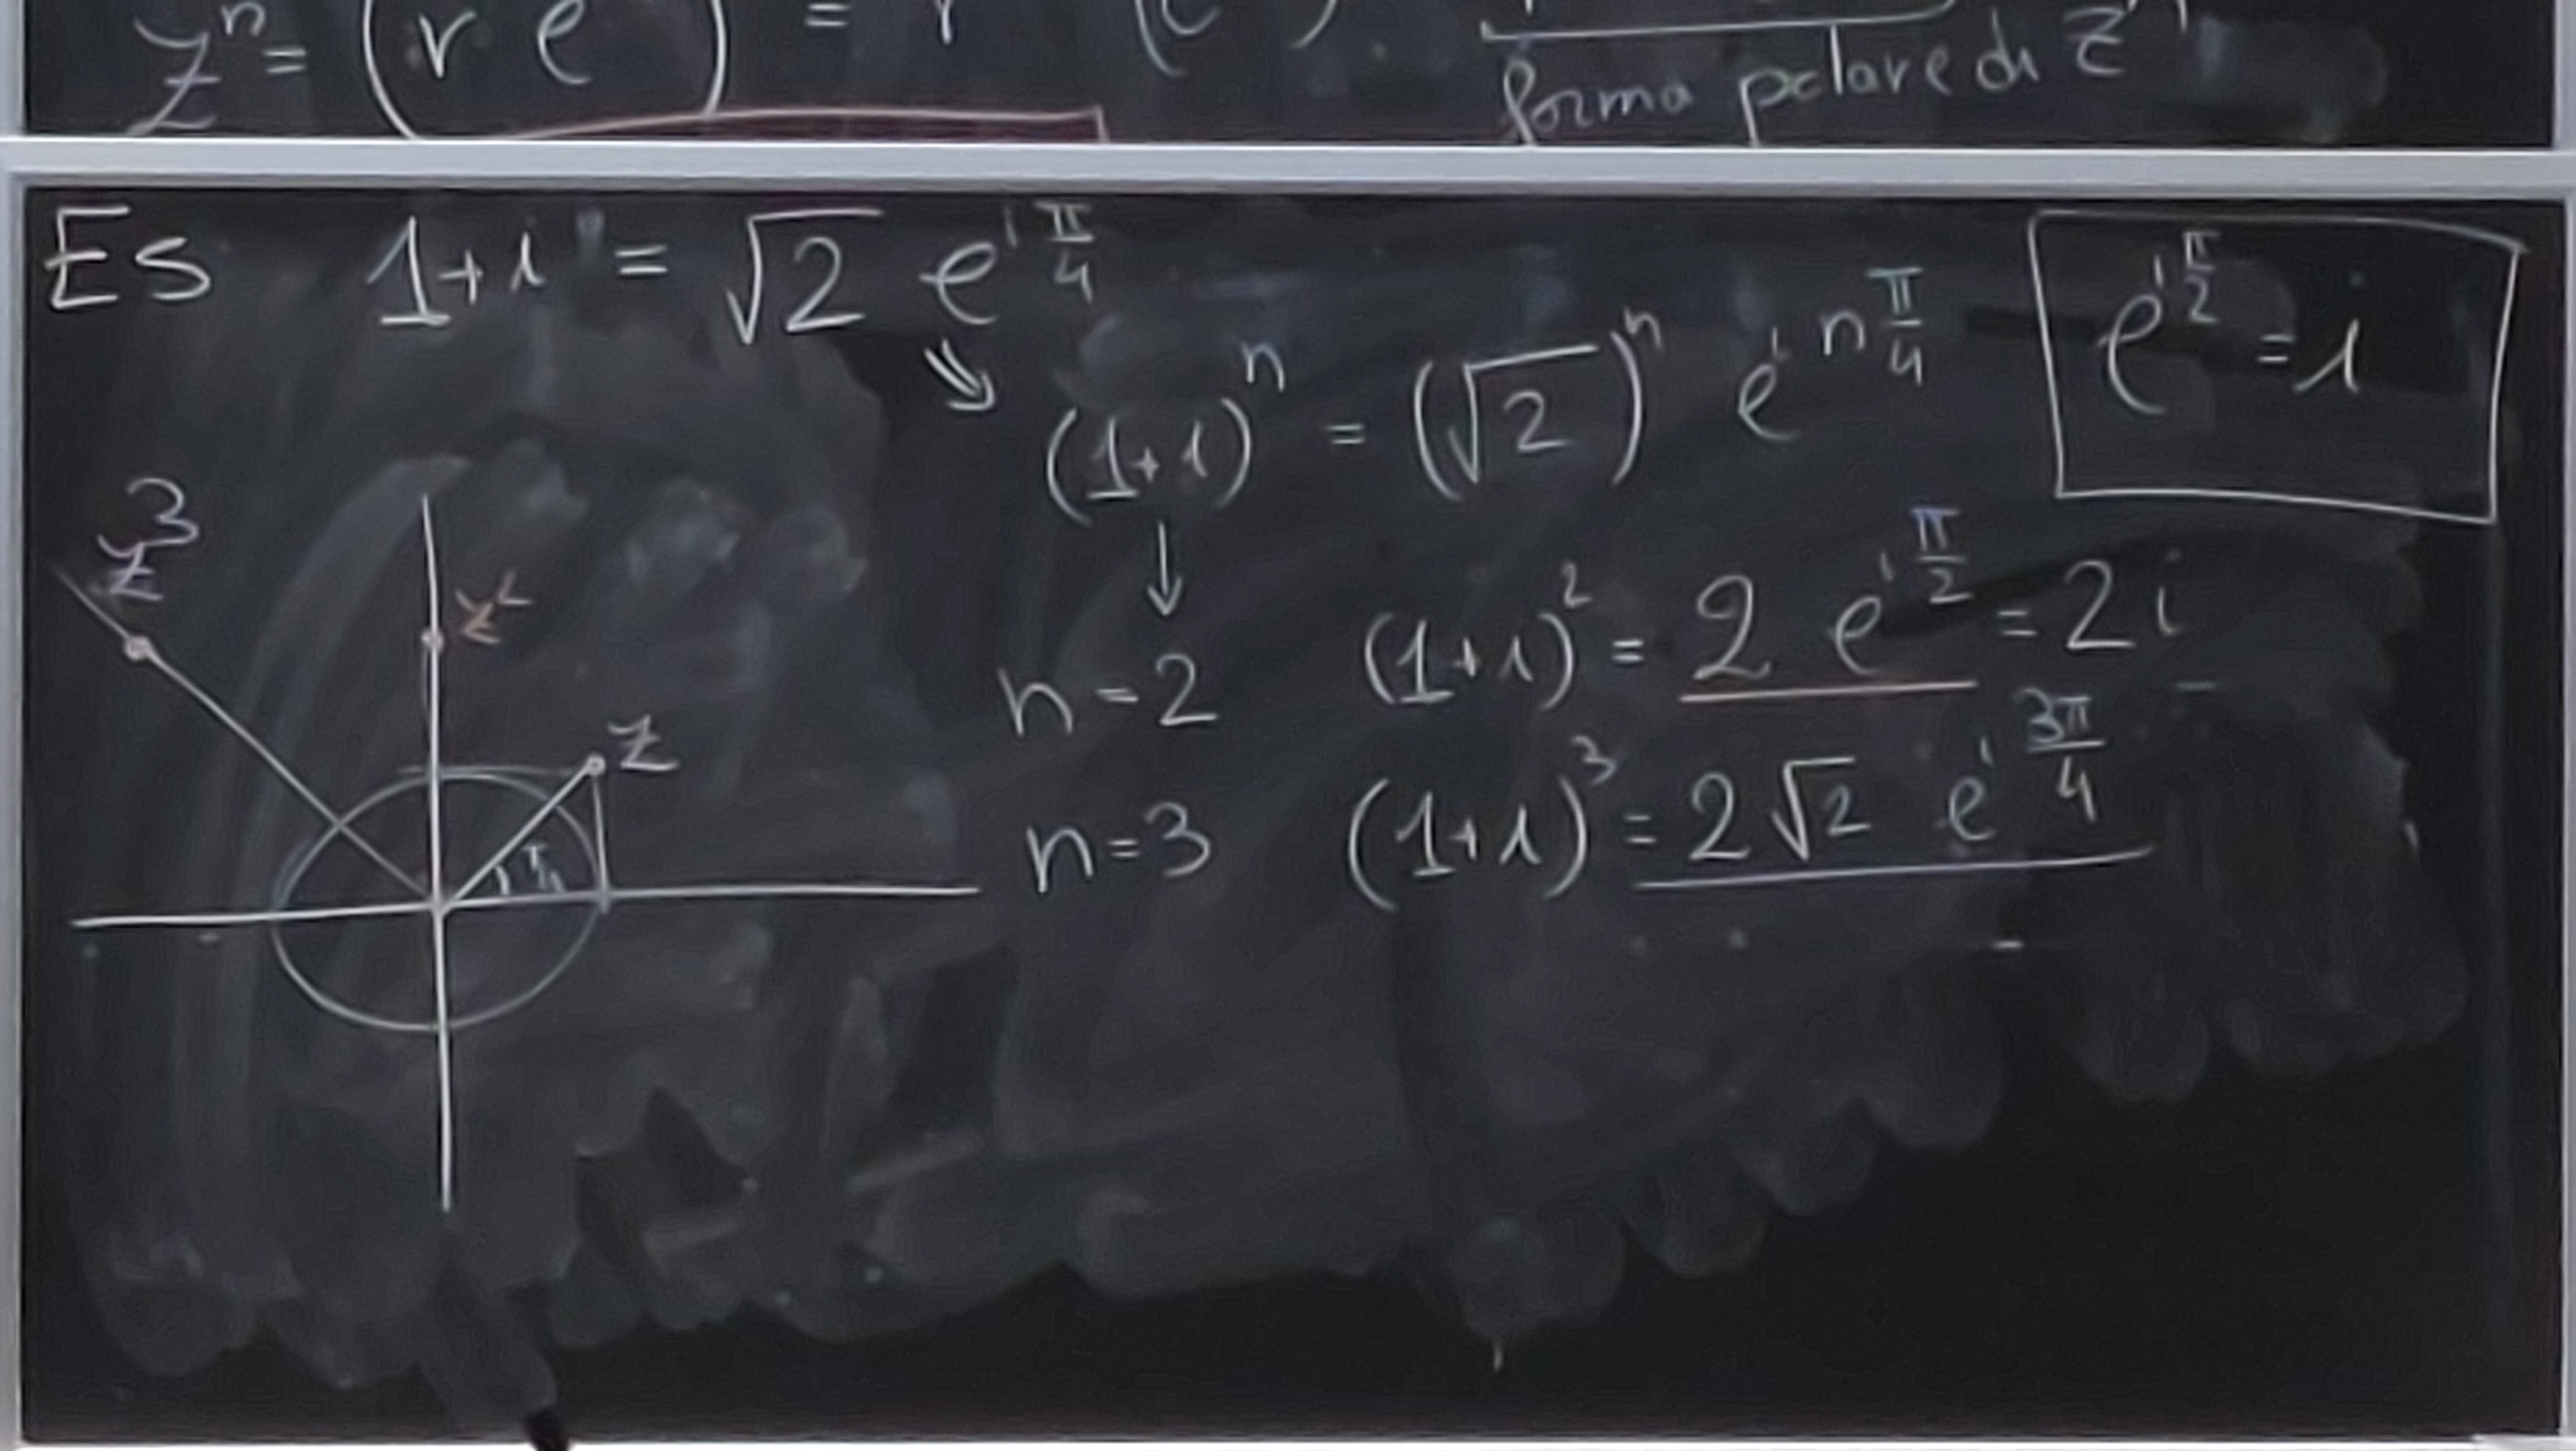 zⁿ = (r e ) = r (e ) .
forma polare di zⁿ
ES 1+i = √2 e^{iπ/4}
(1+i)ⁿ = (√2)ⁿ e^{i n π/4}
e^{iπ/2} = i
n=2 (1+i)² = 2 e^{iπ/2} = 2i
n=3 (1+i)³ = 2√2 e^{i 3π/4}
z³
z²
z
π/4